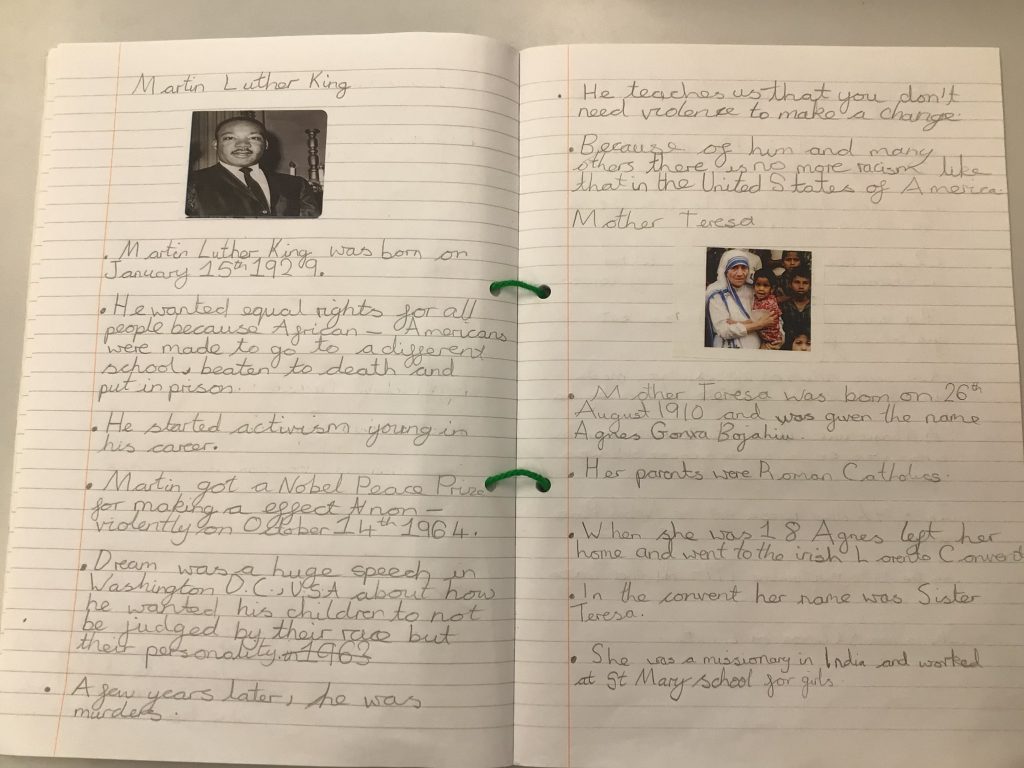 Martin Luther King
. Martin Luther King was born on
January 15th 1929.
• He wanted equal rights for all
people because African - Americans
were made to go to a different
school, beaten to death and
put in prison.
• He started activism young in
his career.
• Martin got a Nobel Peace Prize
for making a effect non -
violently on October 14th 1964.
• Dream was a huge speech in
Washington D.C., USA about how
he wanted his children to not
be judged by their race but
their personality. in 1963
• A few years later, he was
murders.
• He teaches us that you don't
need violence to make a change.
• Because of him and many
others there is no more racism like
that in the United States of America
Mother Teresa
• Mother Teresa was born on 26th
August 1910 and was given the name
Agnes Gonxa Bojahiu.
• Her parents were Roman Catholics.
• When she was 18 Agnes left her
home and went to the irish Loreto
• In the convent her name was Sister
Teresa.
• She was a missionary in India and worked
at St Mary school for girls.